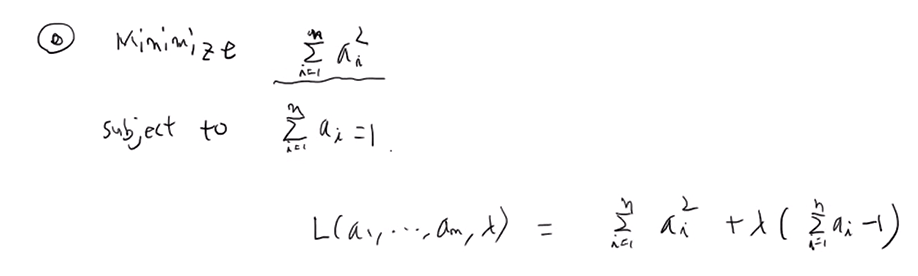 ① Minimize $\sum_{i=1}^{n} a_i^2$
subject to $\sum_{i=1}^{n} a_i = 1$.
$L(a_1, \cdots, a_n, \lambda) = \sum_{i=1}^{n} a_i^2 + \lambda ( \sum_{i=1}^{n} a_i - 1 )$